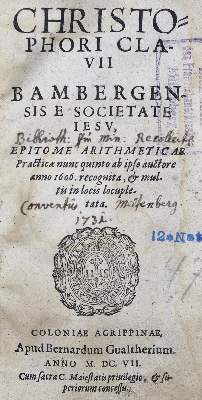 CHRISTO=
PHORI CLA-
VII
BAMBERGEN-
SIS E SOCIETATE
IESV,
Biblioth: Fr. Min: Recollect:
EPITOME ARITHMETICAE
Practicæ nunc quinto ab ipso auctore
anno 1606. recognita, & mul-
tis in locis locuple-
tata.
Conventûs Miltenberg
1731.
COLONIAE AGRIPPINAE,
Apud Bernardum Gualtherium.
ANNO M. DC. VII.
Cum sacræ C. Maiestatis privilegio, & su-
periorum concessu.